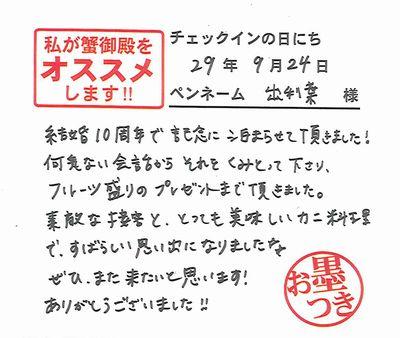 私が蟹御殿を
オススメ
します!!
チェックインの日にち
29年 9月24日
ペンネーム 出利葉 様
結婚10周年で記念に泊まらせて頂きました!
何気ない会話から それを くみとって 下さり、
フルーツ盛りの プレゼントまで 頂きました。
素敵な接客と、とっても美味しいカニ料理
で、すばらしい思い出になりました
ぜひ、また来たいと思います!
ありがとうございました!!
お墨つき